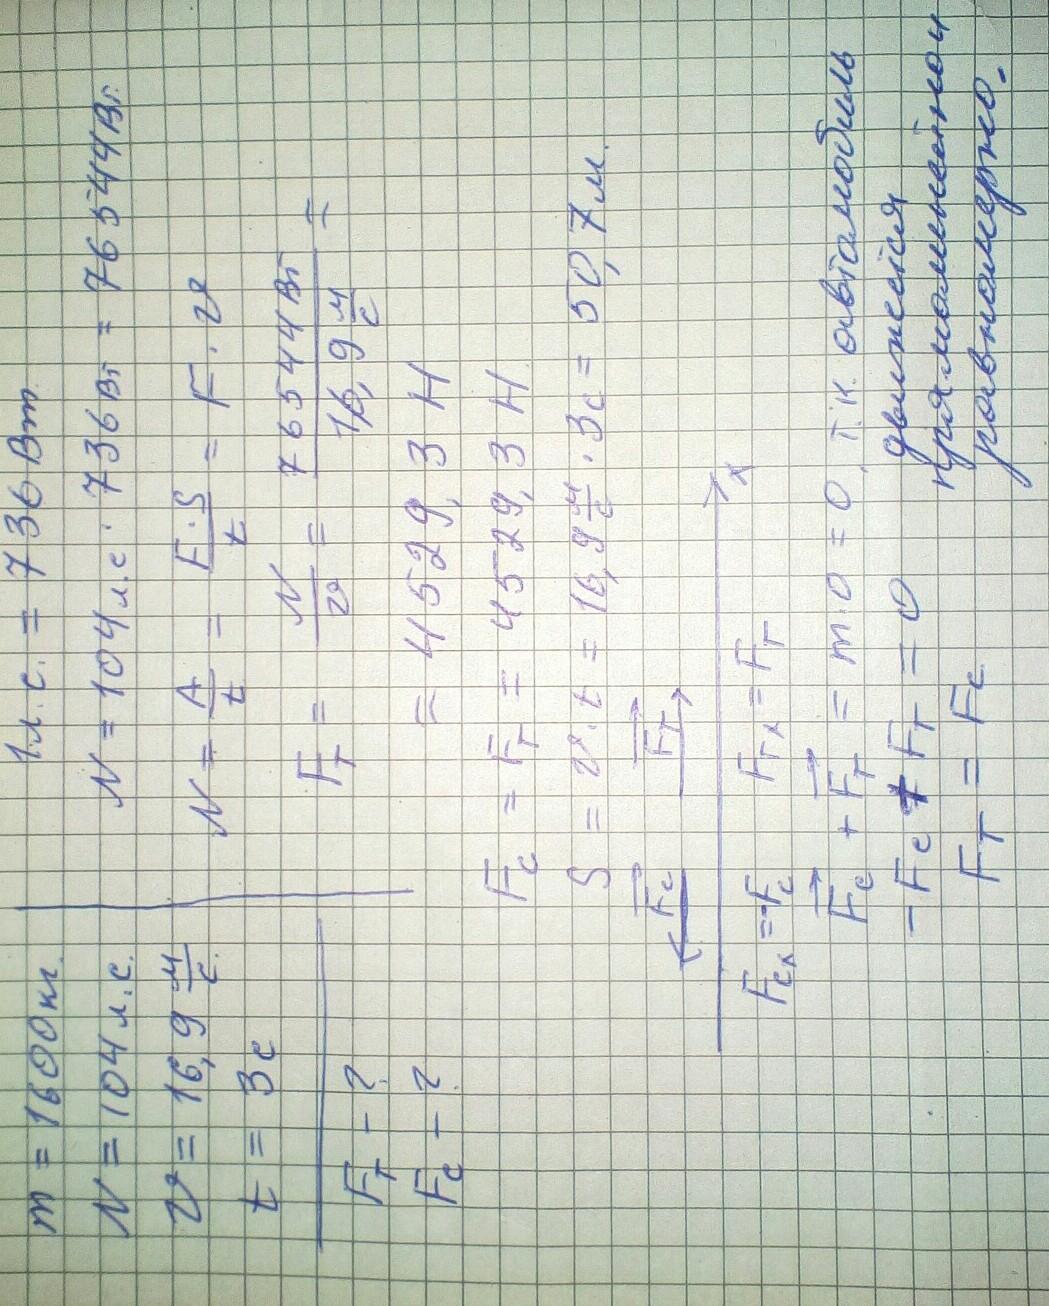 m = 1600 кг.
N = 104 л.с.
υ = 16,9 м/с.
t = 3 с
Fт - ?
Fс - ?
1 л.с. = 736 Вт
N = 104 л.с · 736 Вт = 76544 Вт.
N = A/t = F·S/t = F · υ
Fт = N/υ = 76544 Вт / 16,9 м/с =
= 4529,3 Н
Fс = Fт = 4529,3 Н
S = υ·t = 16,9 м/с · 3с = 50,7 м.
Fс Fт
x
Fсx = -Fс Fтx = Fт
Fс + Fт = m·0 = 0, т.к. автомобиль
движется
прямолинейно и
равномерно.
-Fс + Fт = 0
Fт = Fс